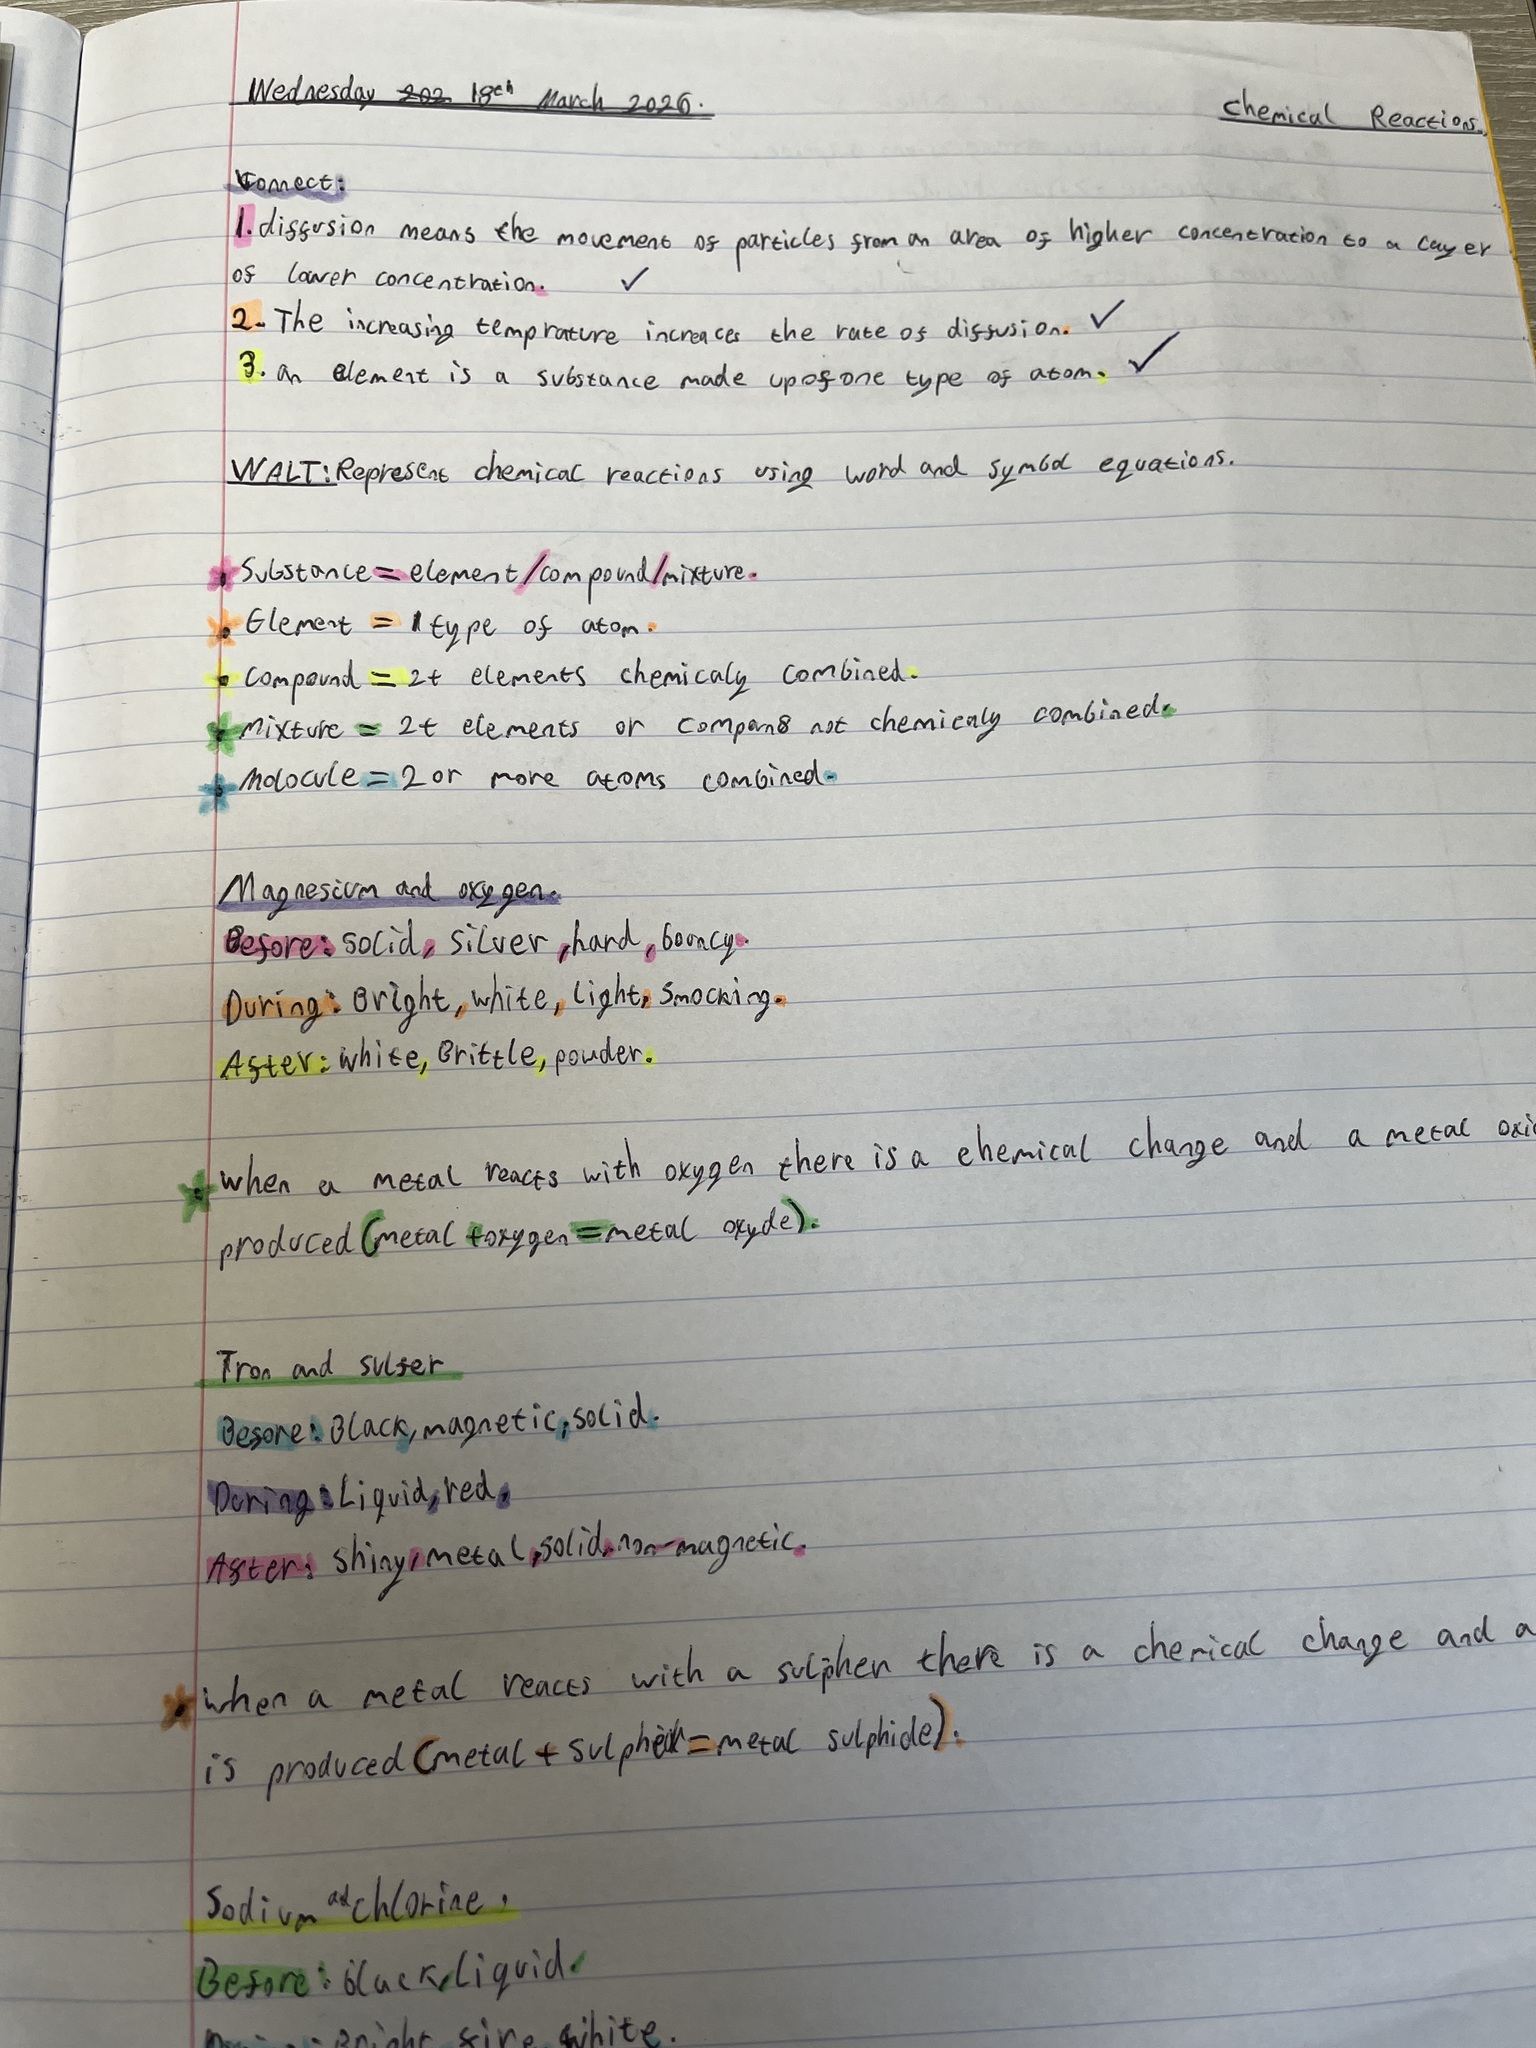 Wednesday 202 18th March 2026.
Chemical Reactions.
Connect:
1. diffusion means the movement of particles from an area of higher concentration to a layer
of lower concentration. ✓
2. The increasing temprature increaces the rate of diffusion. ✓
3. an element is a substance made up of one type of atom. ✓
WALT: Represent chemical reactions using word and symbol equations.
* Substance = element/compound/mixture.
* Element = 1 type of atom.
* Compound = 2+ elements chemicaly combined.
* Mixture = 2+ elements or not chemicaly combined.
* Molocule = 2 or more atoms combined.
Magnesium and oxygen.
Before: solid, silver, hard, bouncy.
During: Bright, white, light, smocking.
After: white, Brittle, powder.
* When a metal reacts with oxygen there is a chemical change and a metal oxi
produced (metal + oxygen = metal oxyde).
Iron and sulfer
Before: Black, magnetic, solid.
During: Liquid, red,
After: shiny, metal, solid, non-magnetic.
* When a metal reacts with a sulpher there is a chemical change and a
is produced (metal + = metal sulphide).
Sodium and chlorine.
Before: black, liquid.
During: Bright, fire, white.